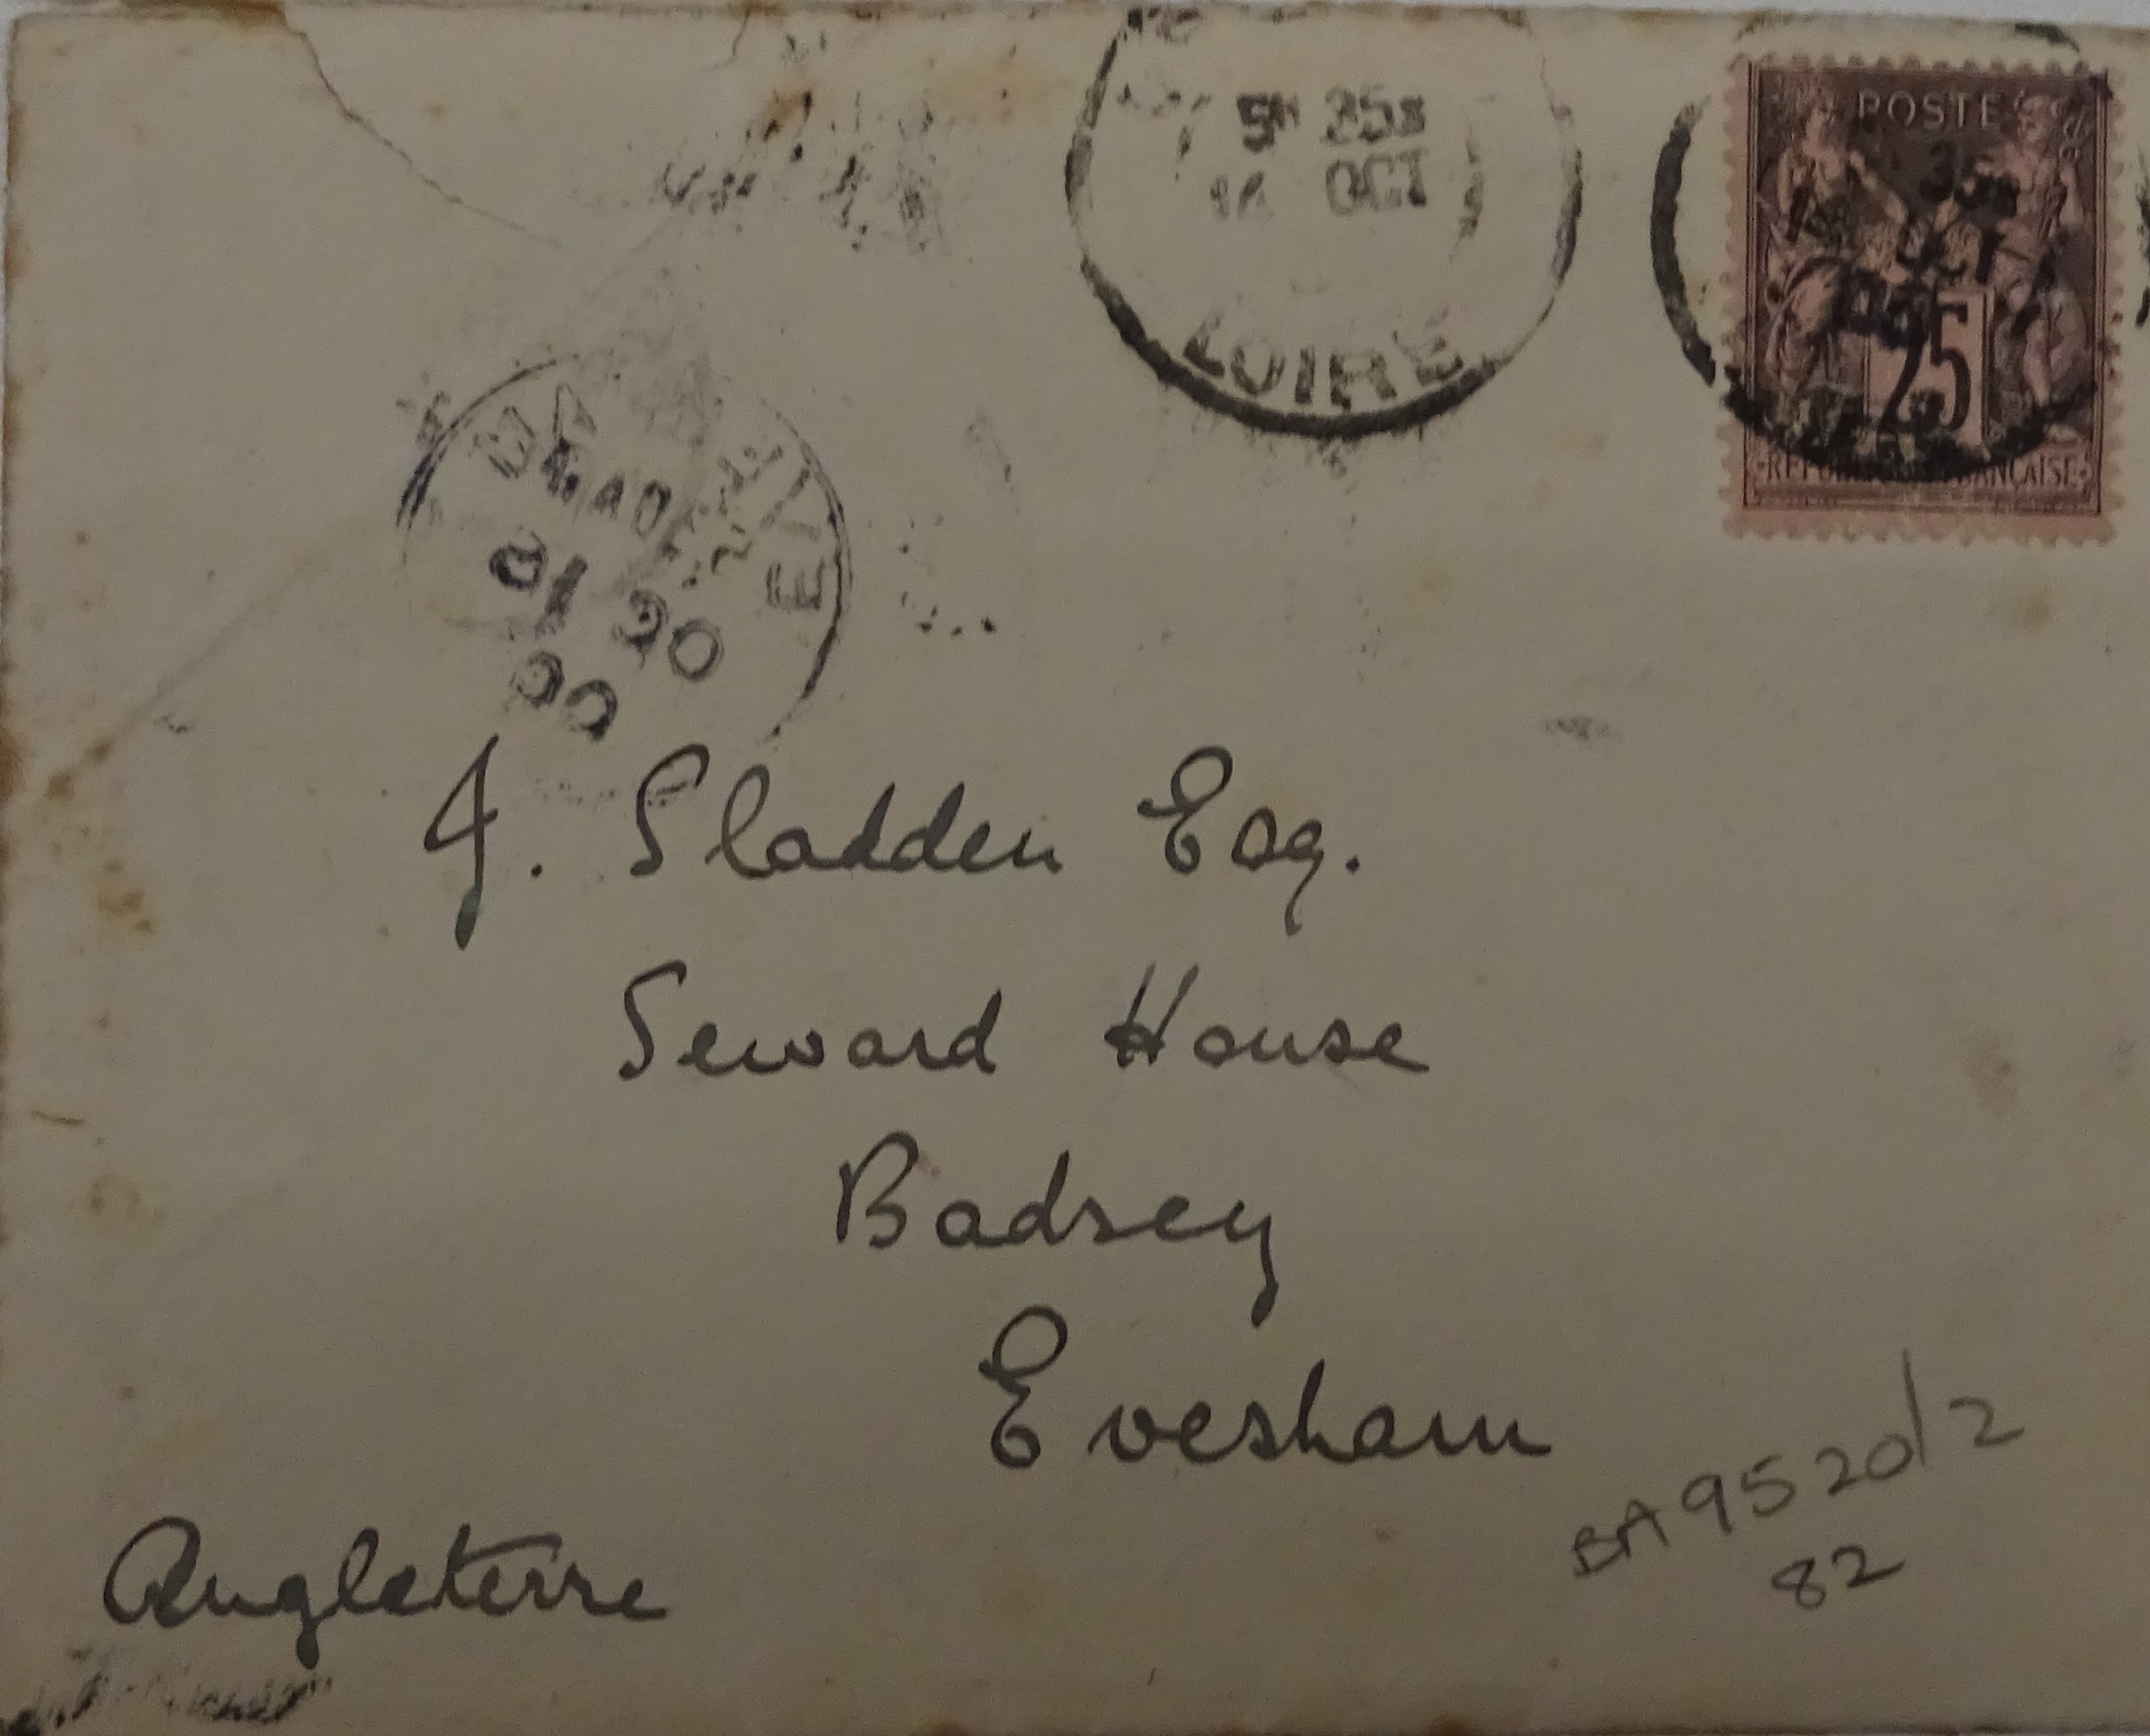 POSTE
OCT
LOIRE
25
REPUBLIQUE FRANÇAISE
J. Sladden Esq.
Seward House
Badsey
Evesham
Angleterre
BA9520/2
82